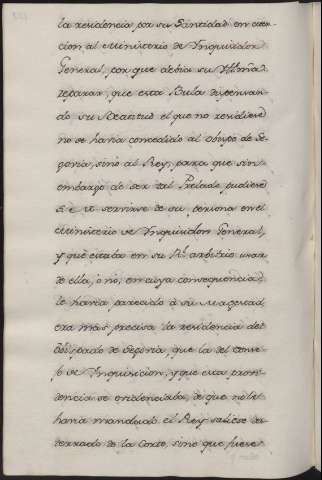 la residencia por su Santidad en aten-
cion al Ministerio de Inquisidor
General, porque debia su Ill.ma
reparar, que esta Bula dispensan-
do su Beatitud el que no residiese
no se havia concedido al Obispo de Se-
govia, sino al Rey, para que sin
embargo de ser tal Prelado pudiese
S. M. servirse de su persona en el
Ministerio de Inquisidor General,
y que estaba en su Rl. arbitrio usar
de ella, ò no, en cuya consequencia
le havia parecido à su Magestad,
era mas precisa la residencia del
Obispado de Segovia, que la del conse-
jo de Inquisicion, y que esta provi-
dencia se evidenciaba, de que no le
havia mandado el Rey saliese des-
terrado de la Corte, sino que fuese